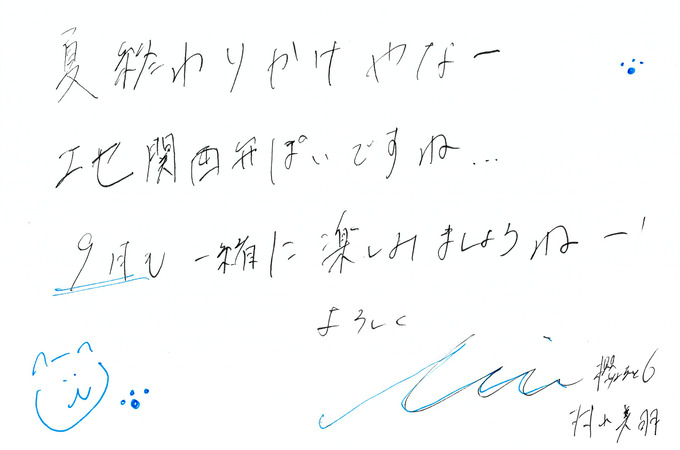 夏終わりかけやなー
エセ関西弁ぽいですね...
9月も一緒に楽しみましょうねー!
よろしく
櫻坂46
村山美羽